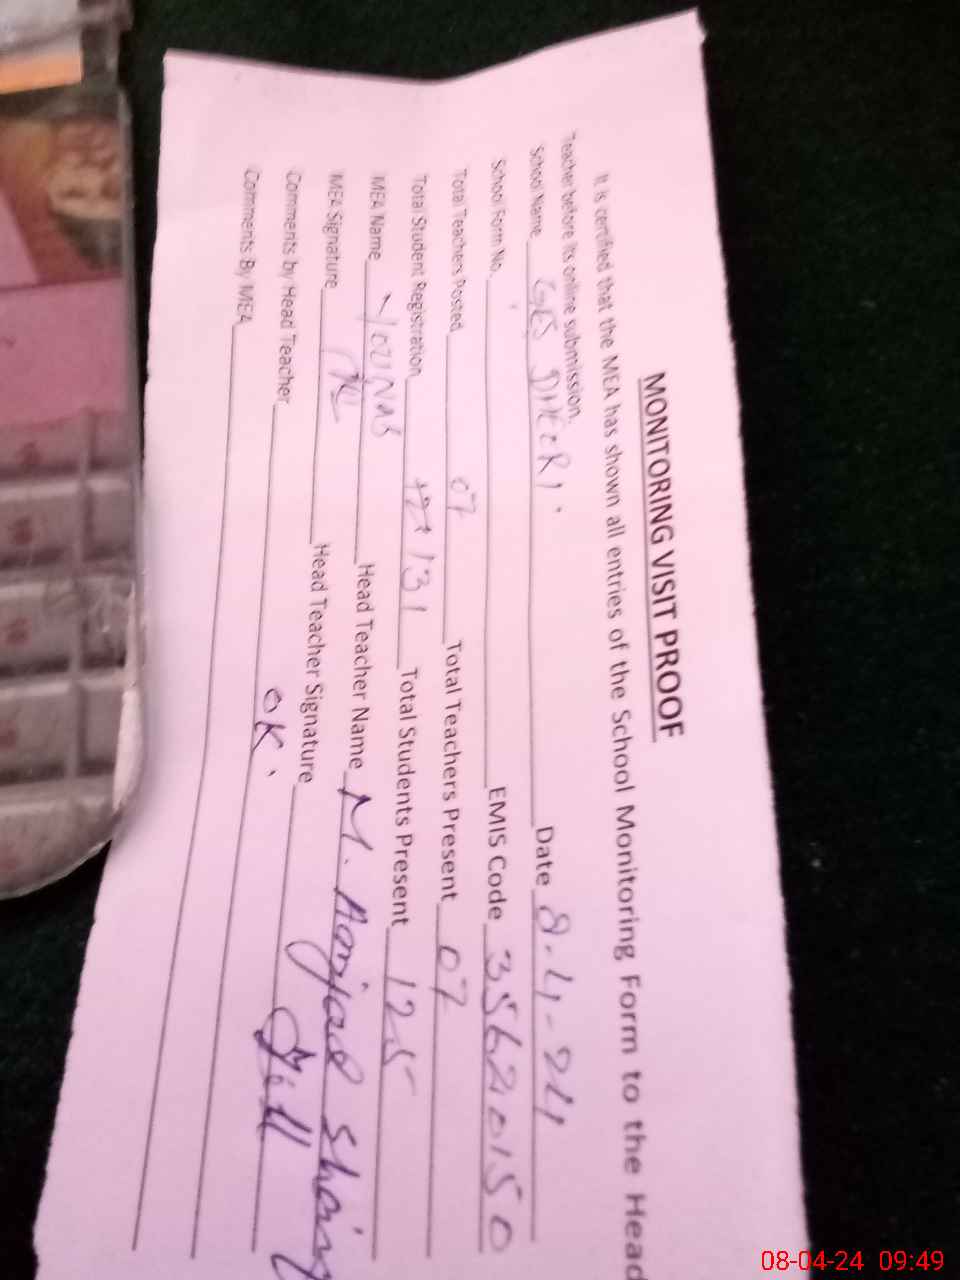 MONITORING VISIT PROOF
It is certified that the MEA has shown all entries of the School Monitoring Form to the Head
Teacher before its online submission.
School Name GES DHERI. Date 8-4-24
School Form No. EMIS Code 35620150
Total Teachers Posted 07 Total Teachers Present 07
Total Student Registration 131 Total Students Present 125
MEA Name YOUNAS Head Teacher Name M. Amjad
MEA Signature Head Teacher Signature
Comments by Head Teacher OK.
Comments By MEA
08-04-24 09:49